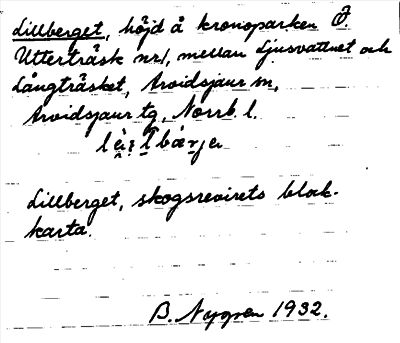 Lillberget, höjd å kronoparken Ö.
Utterträsk nr 1, mellan Ljusvattnet och
Långträsket, Arvidsjaur sn,
Arvidsjaur tg, Norrb. l.
Lillberget, skogsrevirets blåk-
karta.
B. Nygren 1932.